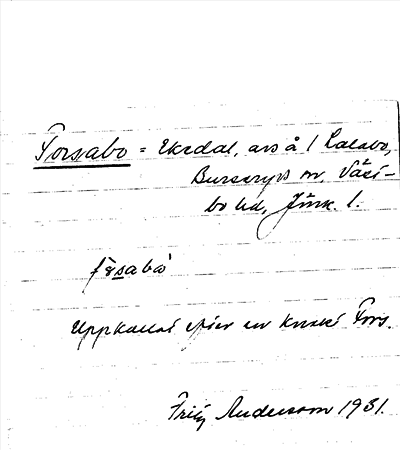 Forsabo = Ekedal, avs å 1 Lalabo,
Burseryds sn, Väst-
bo hd, Jönk. l.
fǒsabo
Uppkallat efter en knekt Fors.
Fritz Andersson 1931.